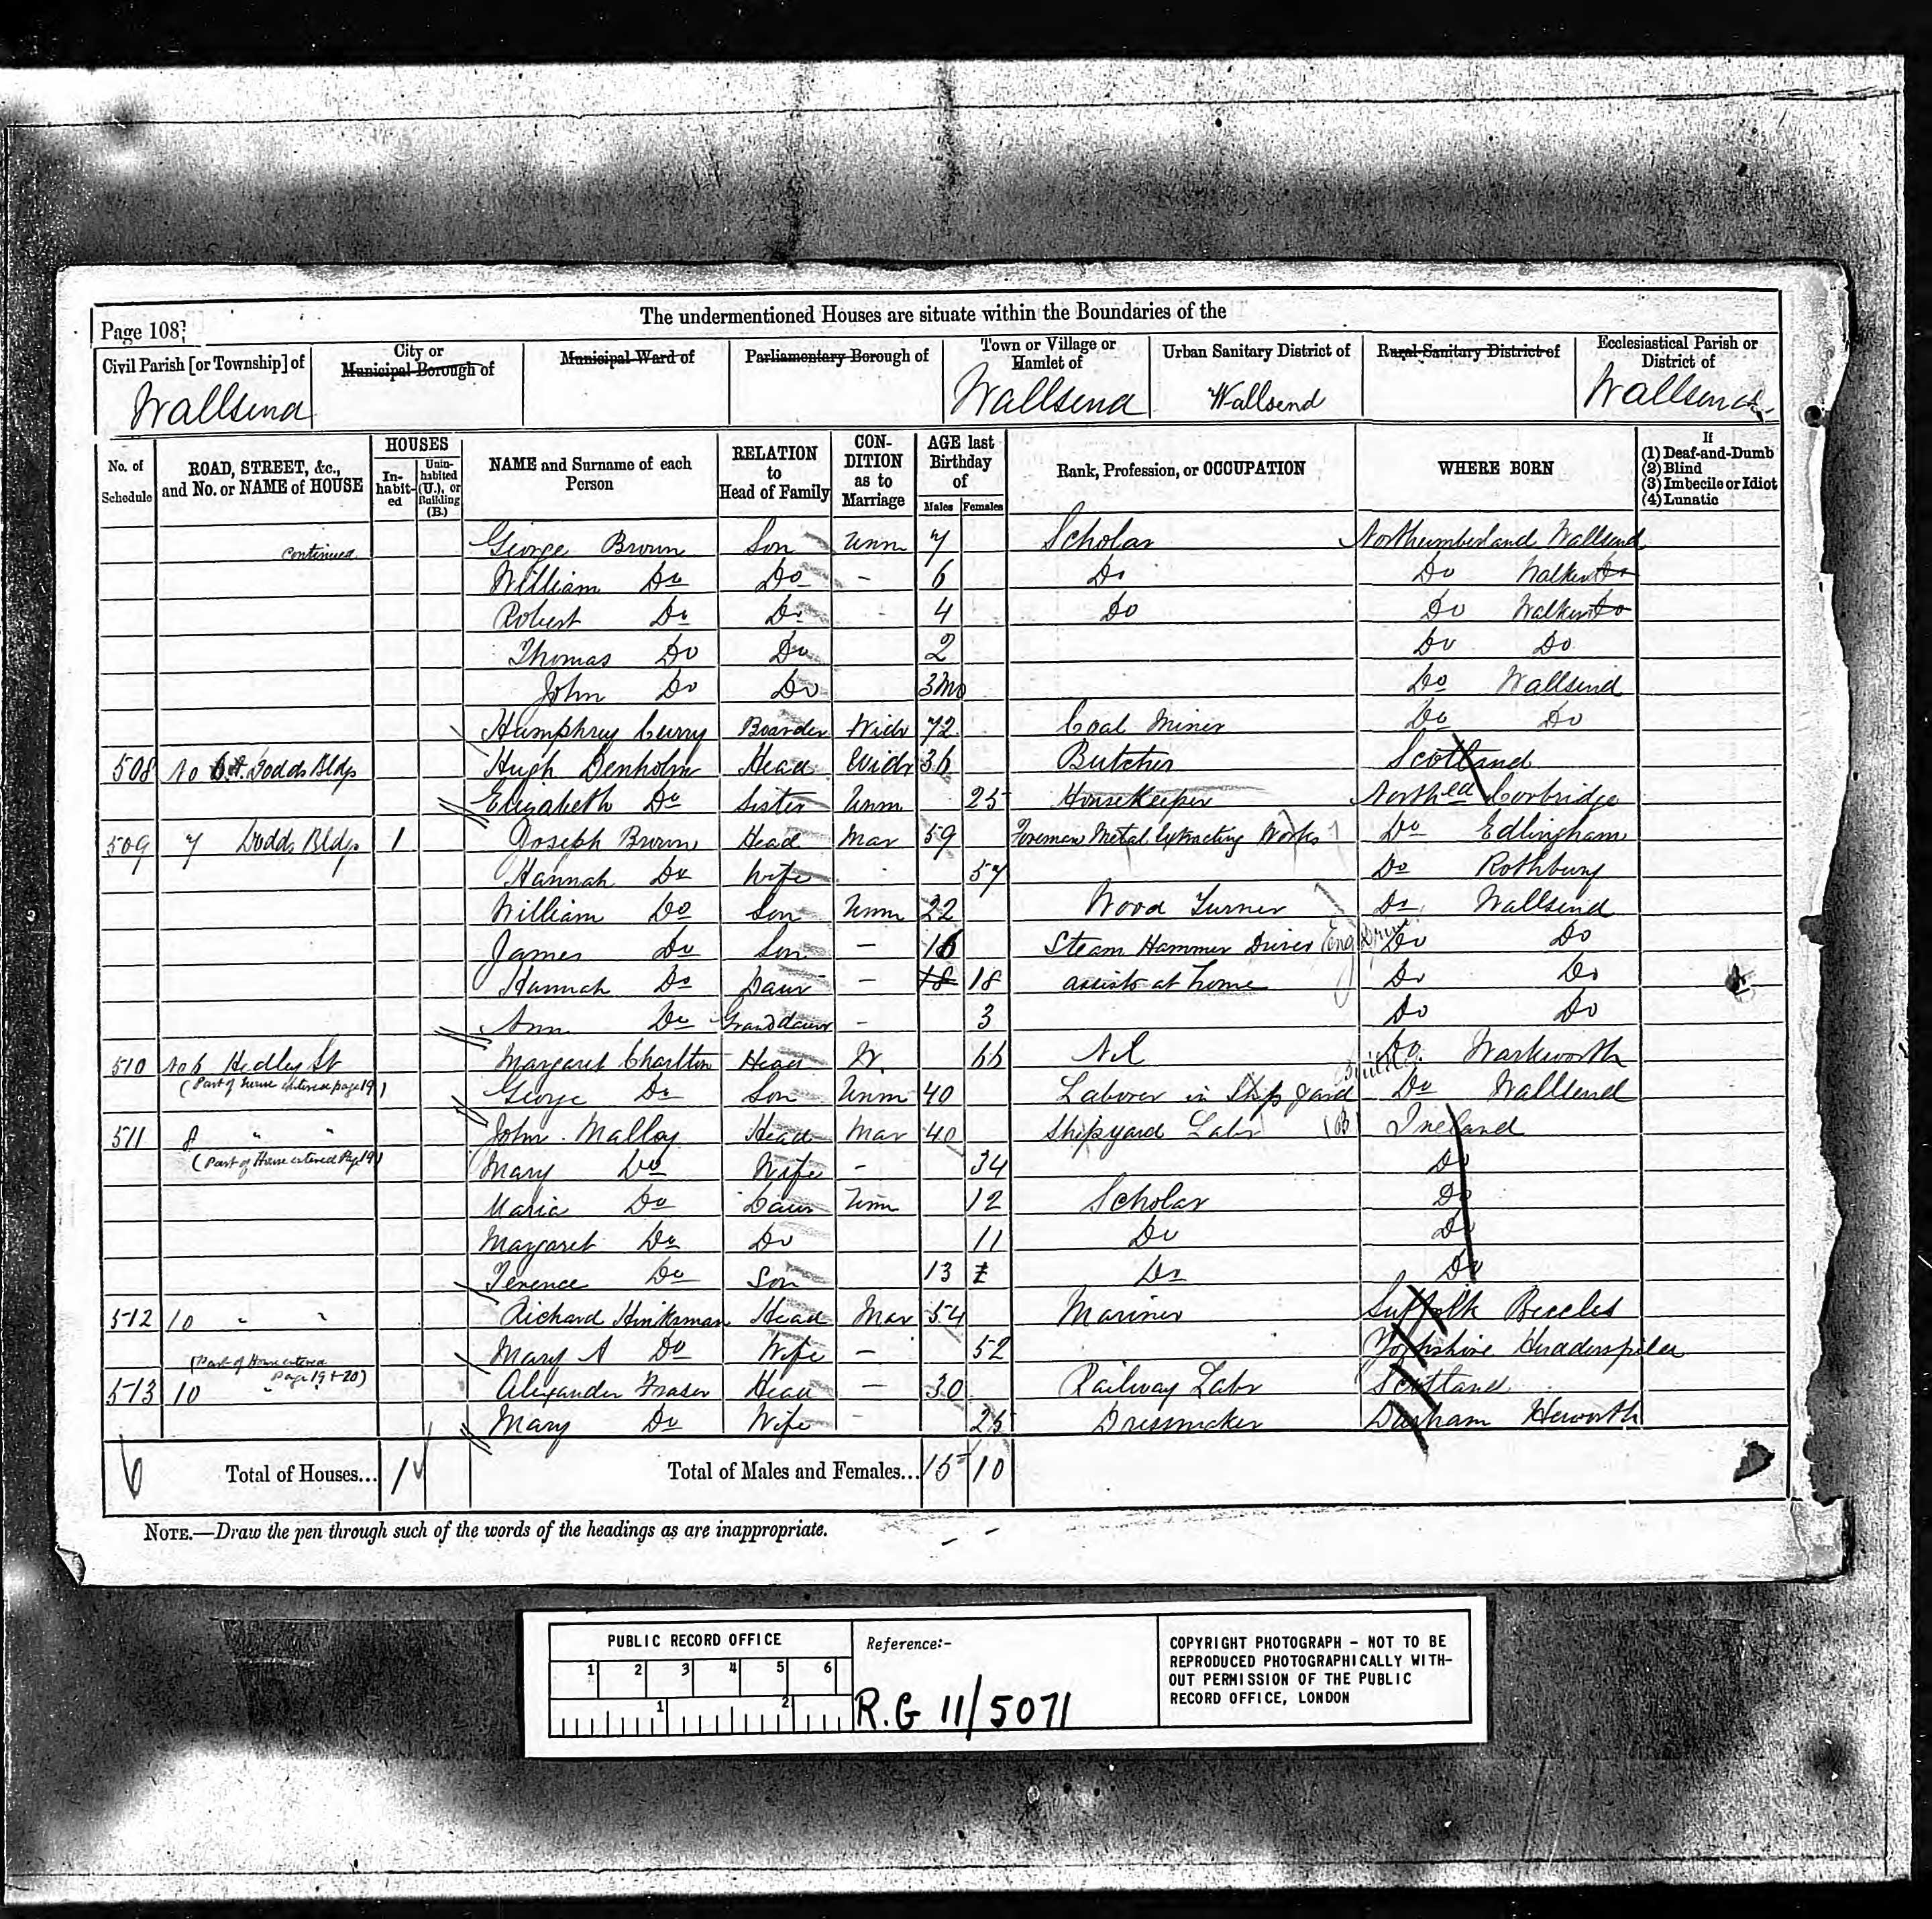 Page 108
The undermentioned Houses are situate within the Boundaries of the
Civil Parish [or Township] of
City or Municipal Borough of
Municipal Ward of
Parliamentary Borough of
Town or Village or Hamlet of
Urban Sanitary District of
Rural Sanitary District of
Ecclesiastical Parish or District of
Wallsend Wallsend Wallsend Wallsend
No. of Schedule
ROAD, STREET, &c., and No. or NAME of HOUSE
HOUSES
In-habit-ed
Unin-habited (U.), or Building (B.)
NAME and Surname of each Person
RELATION to Head of Family
CON-DITION as to Marriage
AGE last Birthday of
Males Females
Rank, Profession, or OCCUPATION
WHERE BORN
If
(1) Deaf-and-Dumb
(2) Blind
(3) Imbecile or Idiot
(4) Lunatic
continued George Brown Son Unm 7 Scholar Northumberland Wallsend
William Do Do - 6 Do Do Walker Do
Robert Do Do - 4 Do Do Walker Do
Thomas Do Do 2 Do Do
John Do Do 3mo Do Wallsend
Humphrey Curry Boarder Widr 72 Coal Miner Do Do
508 No Dodds Bldgs Hugh Denholm Head Widr 36 Butcher Scotland
Elizabeth Do Sister Unm 25 Housekeeper Northld Corbridge
509 7 Dodds Bldgs 1 Joseph Brown Head Mar 59 Foreman Metal Extracting Works Do Edlingham
Hannah Do Wife 57 Do Rothbury
William Do Son Unm 22 Wood Turner Do Wallsend
James Do Son - 16 Steam Hammer Driver Eng Driver Do Do
Hannah Do Daur - 18 18 assists at home Do Do
Ann Do Granddaur - 3 Do Do
510 No 6 Hedley St Margaret Charlton Head W. 66 Nil Do Warkworth
(Part of house entered page 19) George Do Son Unm 40 Laborer in Ship Yard Do Wallsend
511 8 " " John Malloy Head Mar 40 Shipyard Labr Ireland
(Part of House entered Page 19) Mary Do Wife - 34 Do
Maria Do Daur Unm 12 Scholar Do
Margaret Do Do 11 Do Do
Terence Do Son 13 Do Do
512 10 " " Richard Hinksman Head Mar 54 Mariner Suffolk Beccles
Mary A Do Wife - 52 Yorkshire
(Part of House entered Page 19 + 20)
513 10 " " Alexander Fraser Head - 30 Railway Labr Scotland
Mary Do Wife - 25 Dressmaker Durham Heworth
6 Total of Houses... 1 Total of Males and Females... 15 10
NOTE.—Draw the pen through such of the words of the headings as are inappropriate.
PUBLIC RECORD OFFICE
1 2 3 4 5 6
1 2
Reference:-
R.G 11/5071
COPYRIGHT PHOTOGRAPH - NOT TO BE
REPRODUCED PHOTOGRAPHICALLY WITH-
OUT PERMISSION OF THE PUBLIC
RECORD OFFICE, LONDON